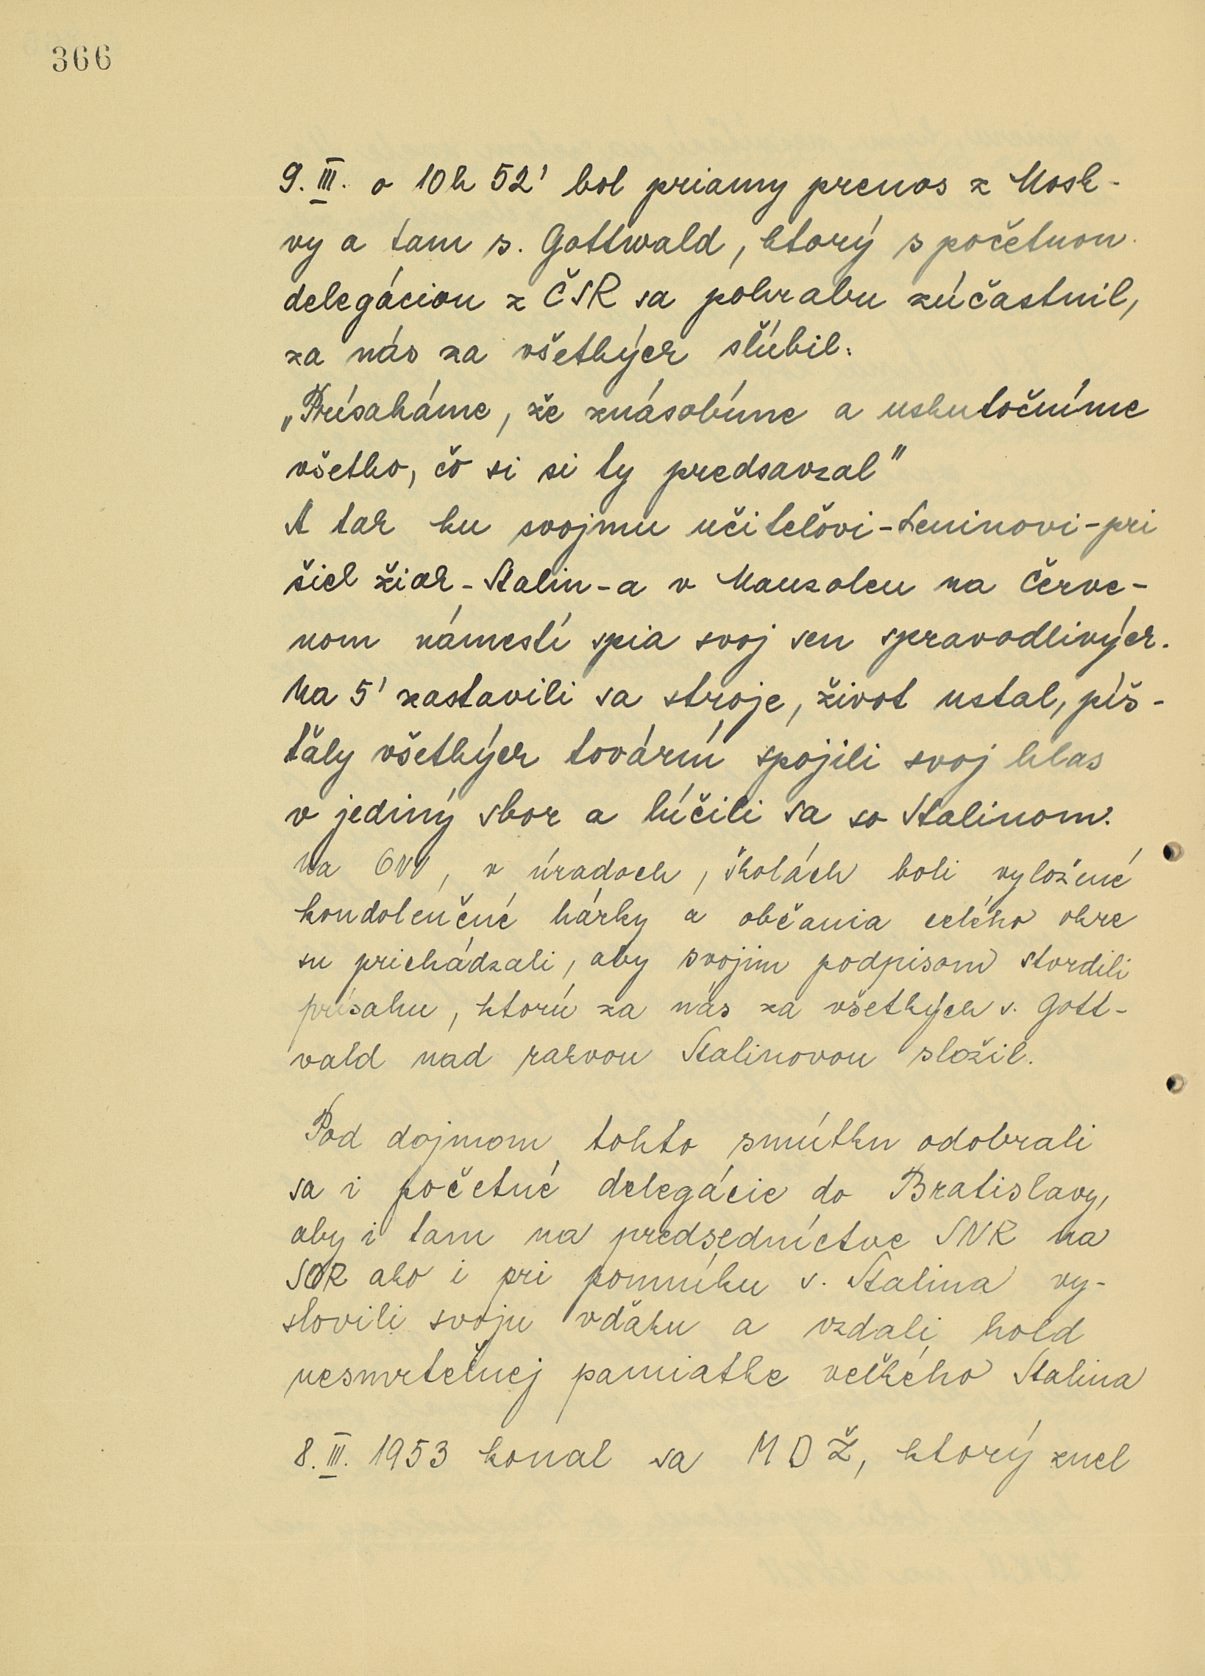 366
9. III. o 10h 52' bol priamy prenos z Mosk-
vy a tam s. Gottwald, ktorý s početnou
delegáciou z ČSR sa pohrabu zúčastnil,
za nás za všetkých slúbil:
„Prísaháme, že znásobíme a uskutočníme
všetko, čo si si ty predsavzal"
A tak ku svojmu učiteľovi-Leninovi-pri
šiel žiak-Stalin-a v Mauzoleu na Červe-
nom námestí spia svoj sen spravodlivých.
Na 5' zastavili sa stroje, život ustal, píš-
ťaly všetkých továrni spojili svoj hlas
v jediný sbor a lúčili sa so Stalinom.
Na ONV, v úradoch, školách boli vyložené
kondolenčné hárky a občania celého okre
su prichádzali, aby svojim podpisom stvrdili
prísahu, ktorú za nás za všetkých s. Gott-
vald nad rakvou Stalinovou složil.
Pod dojmom tohto smútku odobrali
sa i početné delegácie do Bratislavy,
aby i tam na predsedníctve SNR na
SOR ako i pri pomníku s. Stalina vy-
slovili svoju vďaku a vzdali hold
nesmrteľnej pamiatke veľkého Stalina
8. III. 1953 konal sa MDŽ, ktorý znel